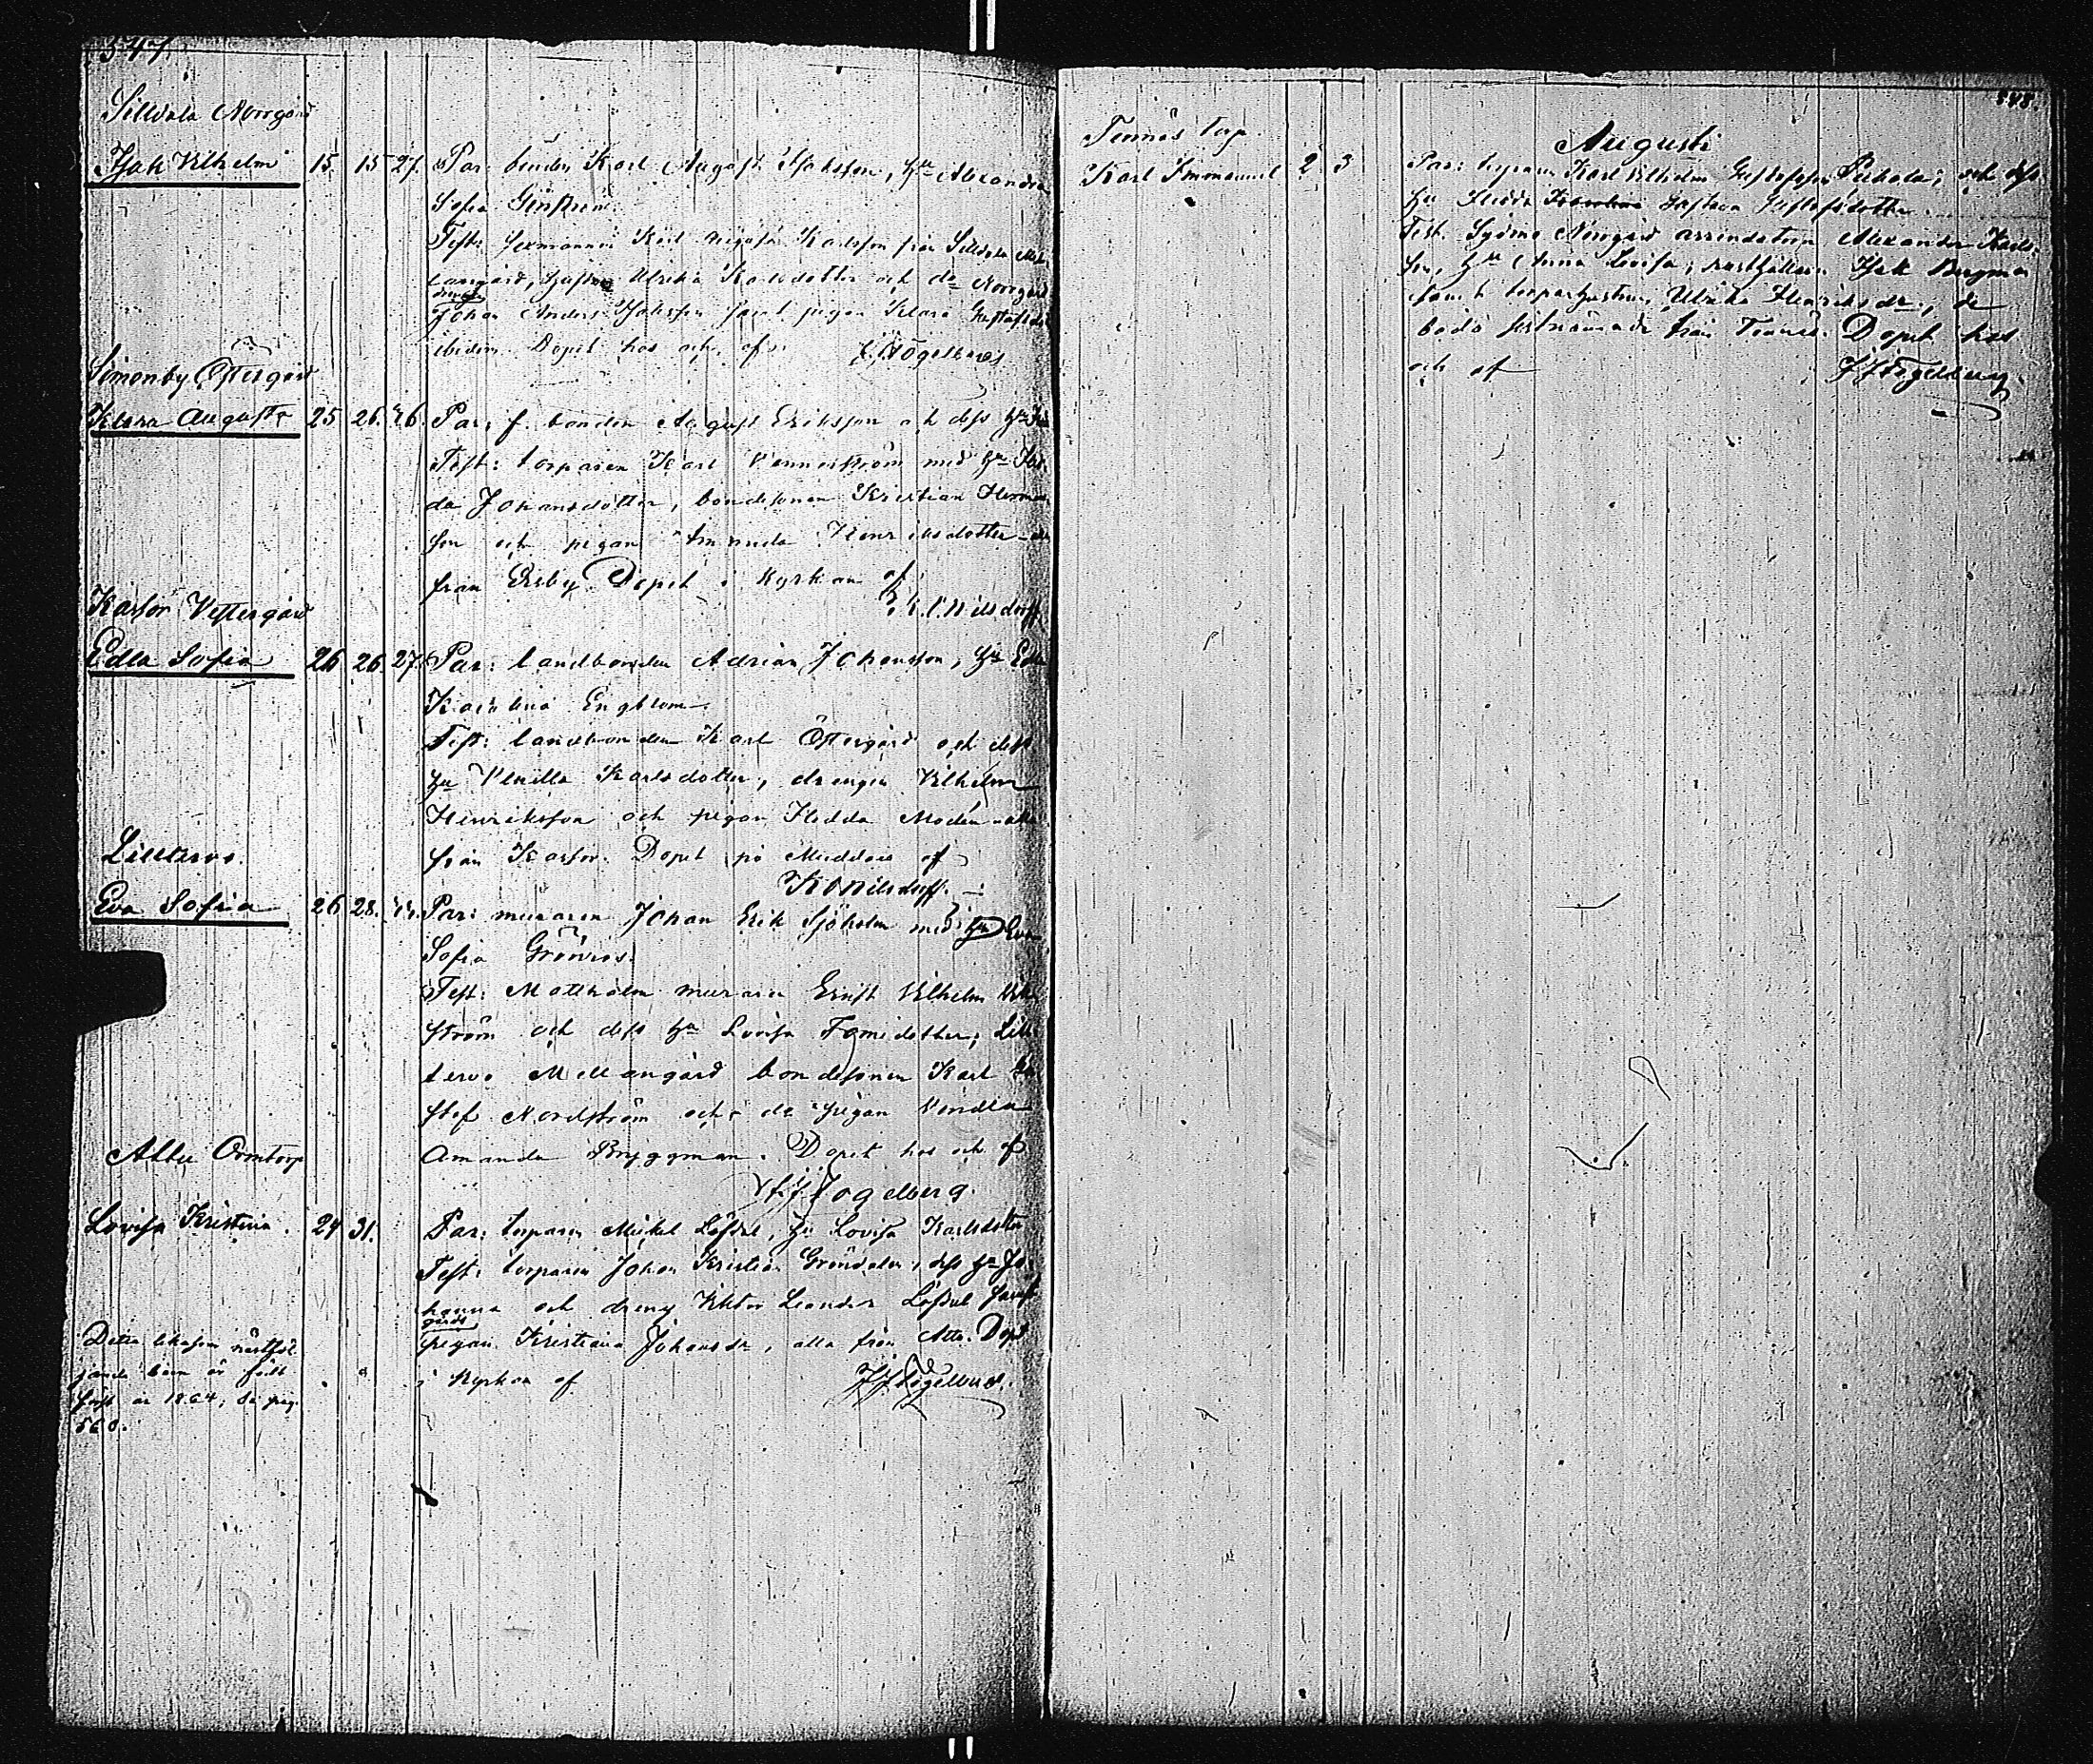 547.
Sillvala Norrgård
Isak Vilhelm 15. 15 27. Par: bonden Karl August Isaksson, Hu Alexandra
Sofia
Test: sexmannen Karl August Karlsson från Sillvala Mel-
langård, hustru Ulrika Karlsdotter och do Norrgård
drengen
Johan Anders Isaksson samt pigan Klara Gustafsdr
ibidem. Döpet hos och af
Simonby Östergård
Klara Augusta 25 26. 26. Par: f. bonden August Eriksson och dess Hu
Test: torparen Karl Vennerström med Hu
da Johansdotter, bondesonen Kristian Herman-
son och pigan Amanda Henriksdotter
från Ersby. Döpet i Kyrkan af
K. K. Nilsdorff.
Karfor Vestergård
Edla Sofia 26 26. 27. Par: landbonden Adrian Johansson, Hu Edla
Karolina Engblom.
Test: landbonden Karl Östergård och dess
Hu Karlsdotter, drengen Vilhelm
Henriksson och pigan Hedda Modén alla
från Karfor. Döpet på af
K K Nilsdorff.
Lilltervo.
Eva Sofia 26 28. Par: muraren Johan Erik Sjöholm med Hu Eva
Sofia Grönroos.
Test: Mattholm muraren Ernst Vilhelm
ström och dess Hu Lovisa Tomidotter; Lill-
tervo Mellangård bondesonen Karl Gu-
staf Nordström och do pigan Vendla
Amanda Bryggman. Döpet hos och af
J J Fogelberg.
Attu Ormtorp
Lovisa Kristina. 24 31. Par: torparen Mickel Löfdal, Hu Lovisa Karlsdotter
Test: torparen Johan Kristian Gröndalen, dess Hu Jo-
hanna och dreng Viktor Leander Löfdal samt
gårds
pigan Kristina Johansdr, alla från Attu. Döpt
i Kyrkan af J J Fogelberg.
Detta liksom nästföl-
jande barn är födt
först år 1864; se pag.
560.
548.
Augusti
Tennäs torp.
Karl Immanuel 2. 3 Par: torparen Karl Vilhelm Gustafsson Pukala; och dess
Hu Hedda Gustava Gustafsdotter.
Test. Sydmo Norrgård arrendatorn Alexander Karls-
son, Hu Anna Lovisa; rusthållaren Isak Bergman
samt torparhustrun Ulrika Henriksdr, de
båda sistnämnde från Tennäs. Döpet hos
och af J J Fogelberg.